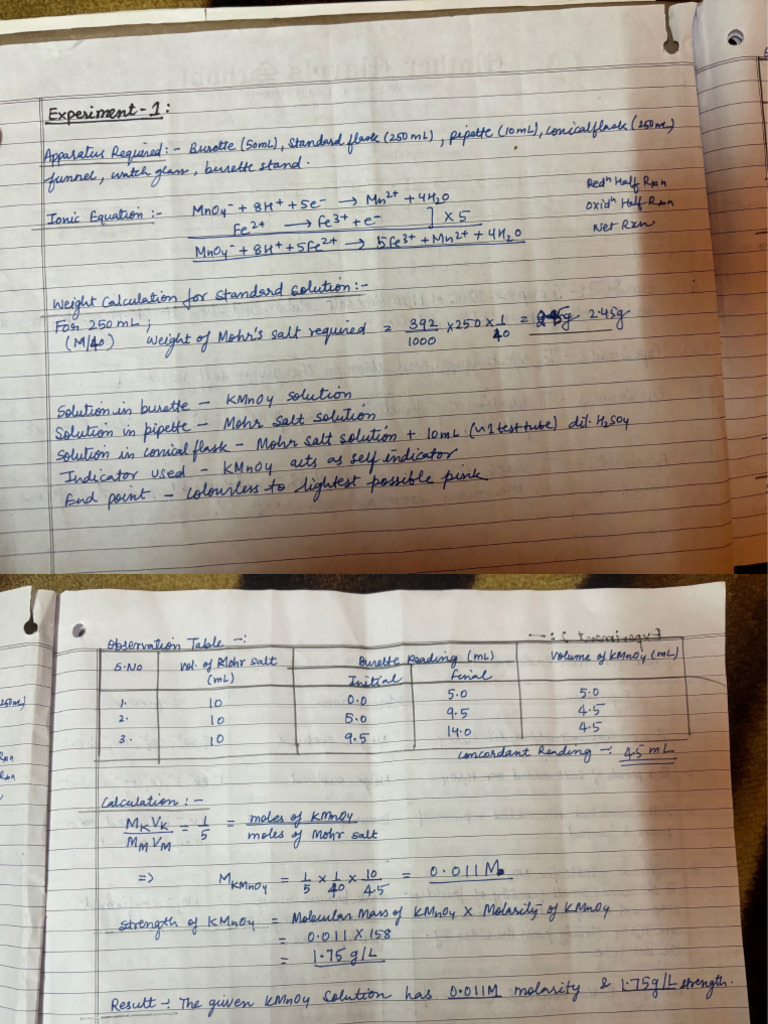 Experiment-1:
Apparatus Required:- Burette (50mL), Standard flask (250mL), pipette (10mL), conical flask (250mL)
funnel, watch glass, burette stand.
Ionic Equation:- MnO4⁻ + 8H⁺ + 5e⁻ → Mn²⁺ + 4H2O Redⁿ Half Rxn
Fe²⁺ → Fe³⁺ + e⁻ ] x 5 Oxidⁿ Half Rxn
MnO4⁻ + 8H⁺ + 5Fe²⁺ → 5Fe³⁺ + Mn²⁺ + 4H2O Net Rxn
Weight Calculation for Standard Solution:-
For 250mL;
(M/40) Weight of Mohr's salt required = 392/1000 x 250 x 1/40 = 2.45g
Solution in burette - KMnO4 solution
Solution in pipette - Mohr Salt solution
Solution in conical flask - Mohr salt solution + 10mL (~1 test tube) dil. H2SO4
Indicator used - KMnO4 acts as self indicator
End point - colourless to lightest possible pink
Observation Table -:
S.No Vol. of Mohr salt (mL) Burette Reading (mL) Volume of KMnO4 (mL)
Initial Final
1. 10 0.0 5.0 5.0
2. 10 5.0 9.5 4.5
3. 10 9.5 14.0 4.5
Concordant Reading -: 4.5 mL
Calculation:-
MKVK/MMVM = 1/5 = moles of KMnO4/moles of Mohr salt
=> MKMnO4 = 1/5 x 1/40 x 10/4.5 = 0.011M
Strength of KMnO4 = Molecular Mass of KMnO4 x Molarity of KMnO4
= 0.011 x 158
= 1.75 g/L
Result -: The given KMnO4 solution has 0.011M molarity & 1.75g/L strength.